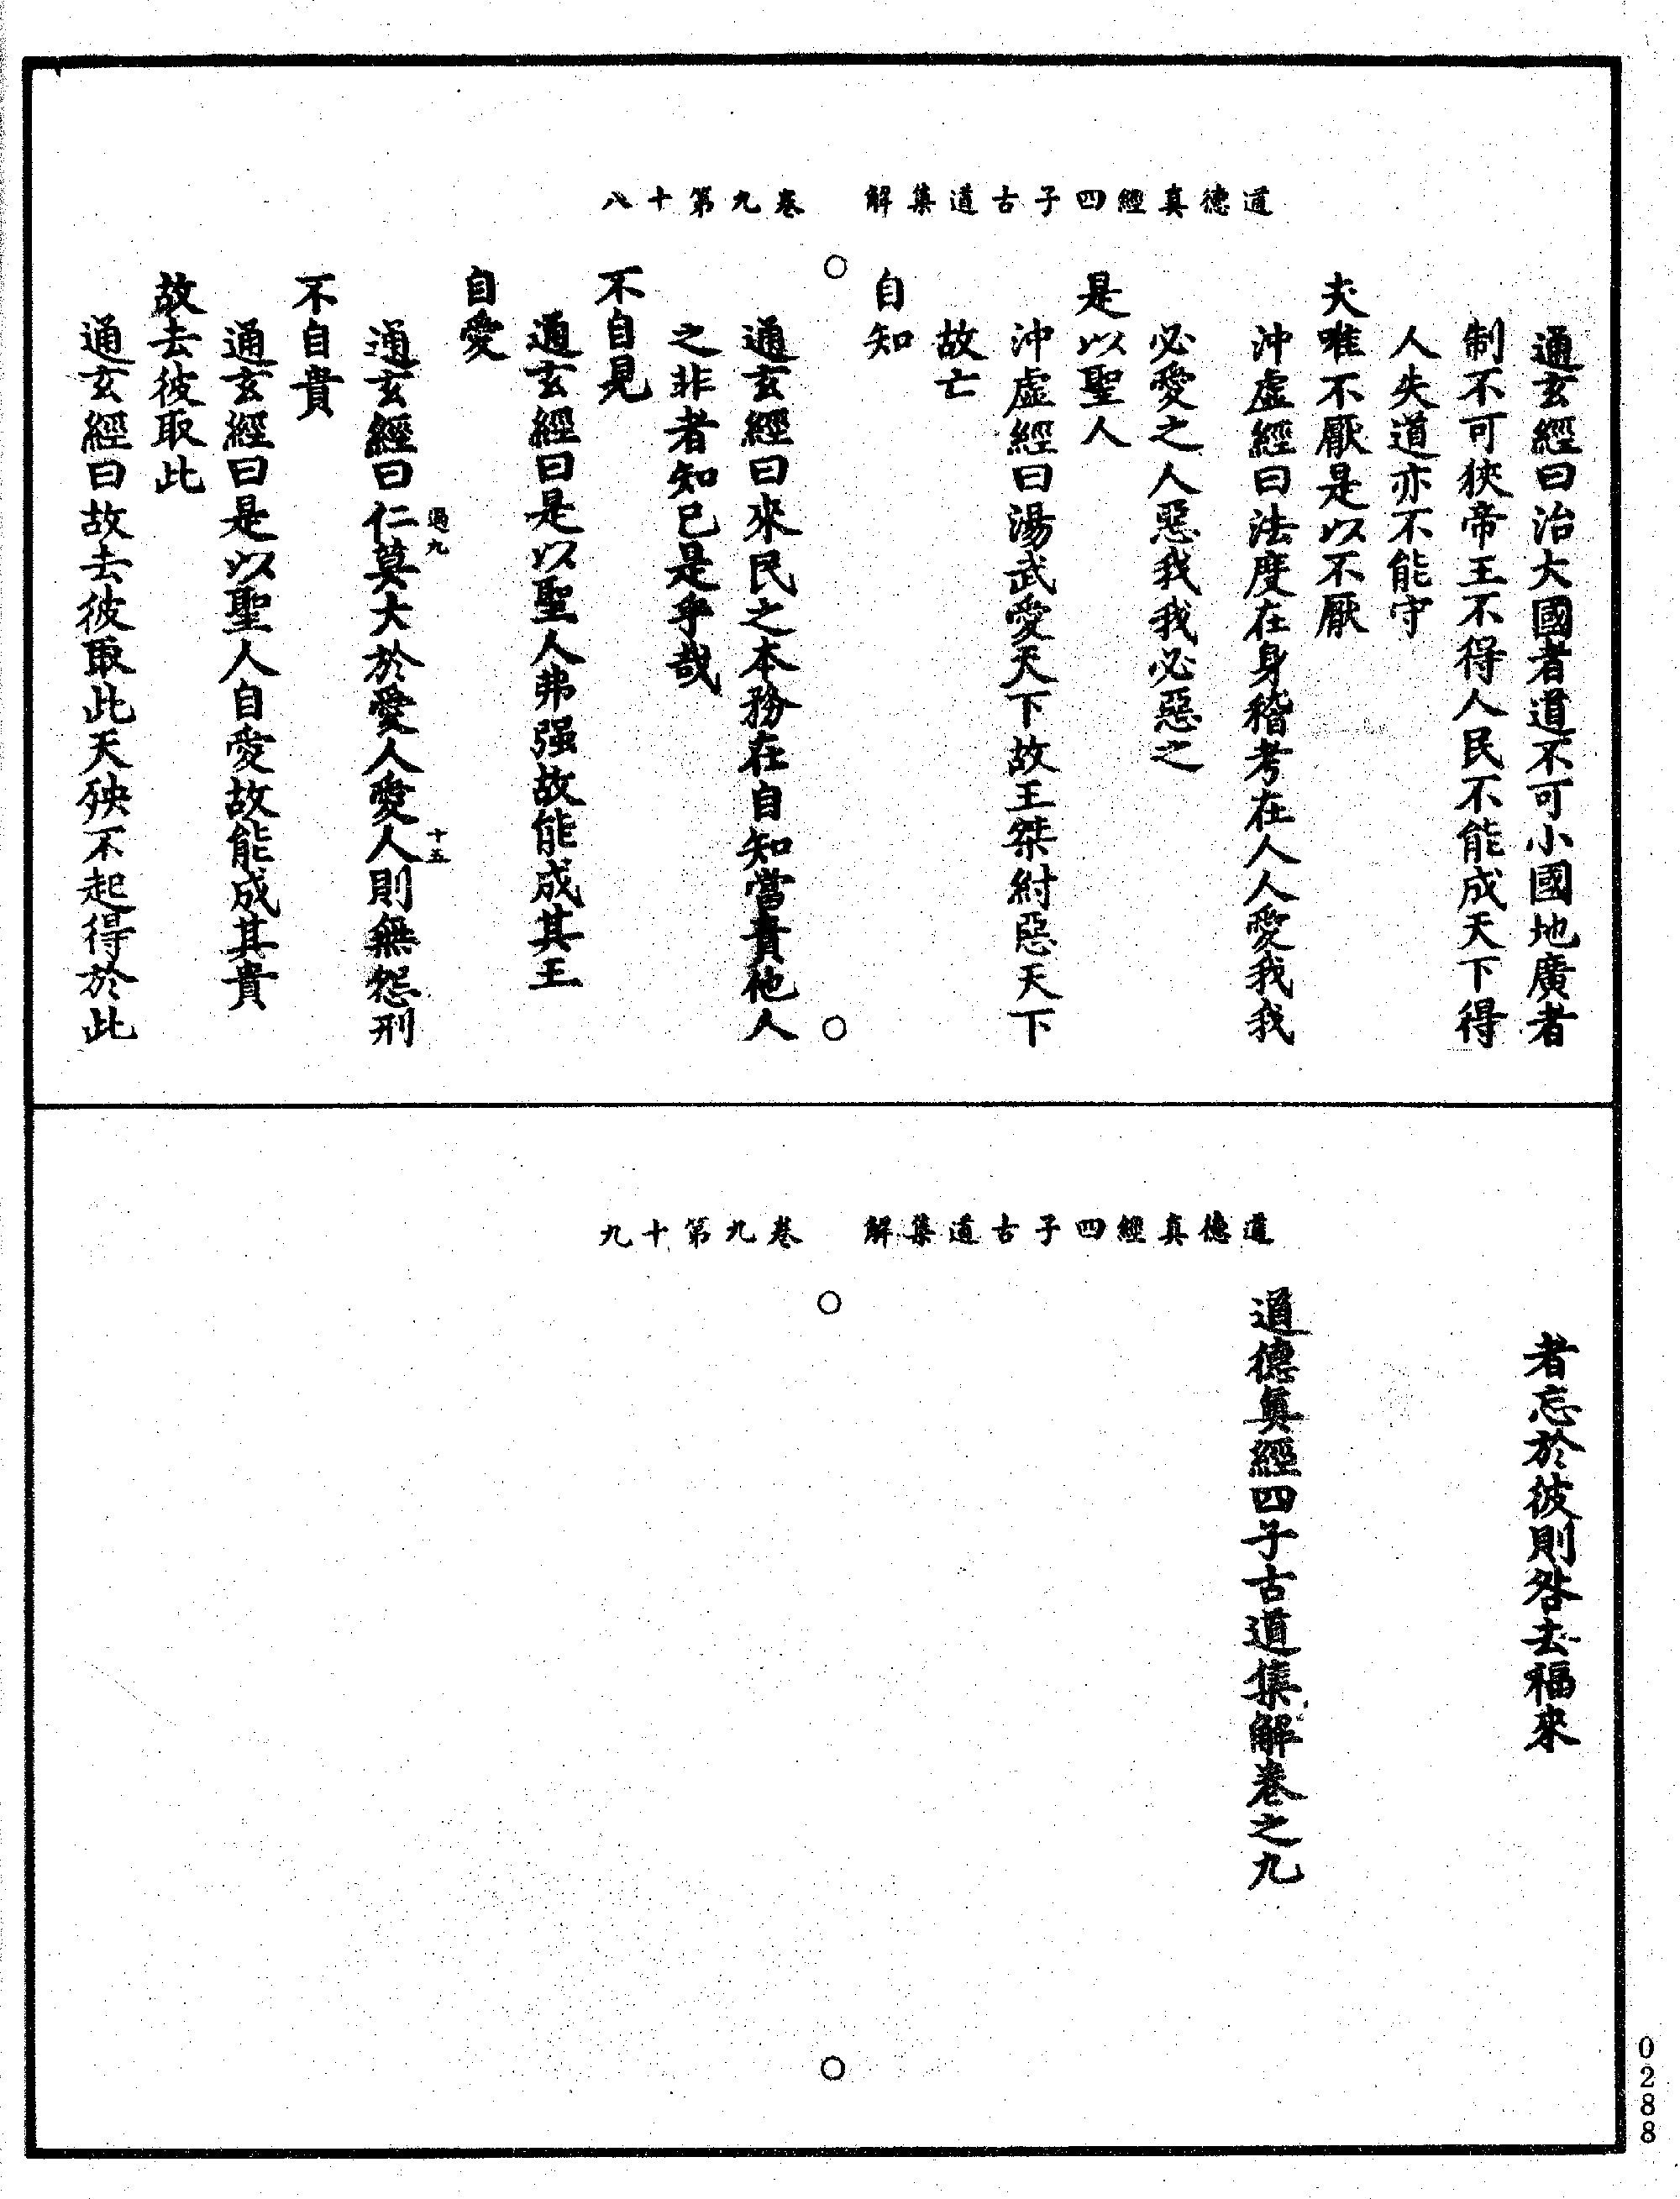 道德真經四子古道集解　卷九第十八
通玄經曰治大國者道不可小國地廣者
制不可狹帝王不得人民不能成天下得
人失道亦不能守
夫唯不厭是以不厭
沖虛經曰法度在身稽考在人人愛我我
必愛之人惡我我必惡之
是以聖人
沖虛經曰湯武愛天下故王桀紂惡天下
故亡
自知
通玄經曰來民之本務在自知當責他人
之非者知已是乎哉
不自見
通玄經曰是以聖人弗强故能成其王
自愛
過九　十五
通玄經曰仁莫大於愛人愛人則無怨刑
不自貴
通玄經曰是以聖人自愛故能成其貴
故去彼取此
通玄經曰故去彼取此天殃不起得於此
道德真經四子古道集解　卷九第十九
者忘於彼則咎去福來
道德真經四子古道集解卷之九
0288